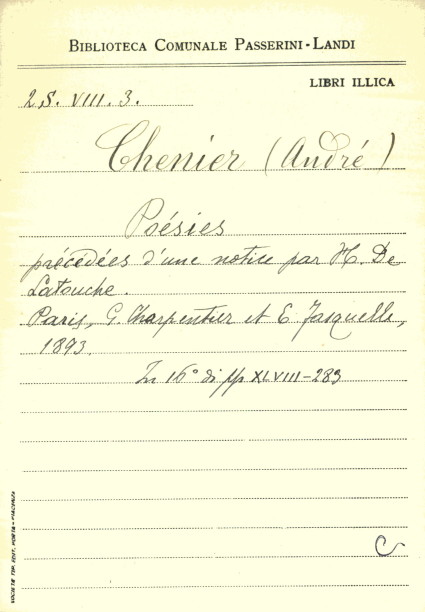 BIBLIOTECA COMUNALE PASSERINI-LANDI
LIBRI ILLICA
2 S. VIII. 3.
Chenier (André)
Poésies
précédées d'une notice par H. De
Latouche.
Paris, G. Charpentier et E. Fasquelle,
1893.
In 16° di pp XLVIII-283
C
SOCIETÀ TIP. EDIT. PORTA - PIACENZA